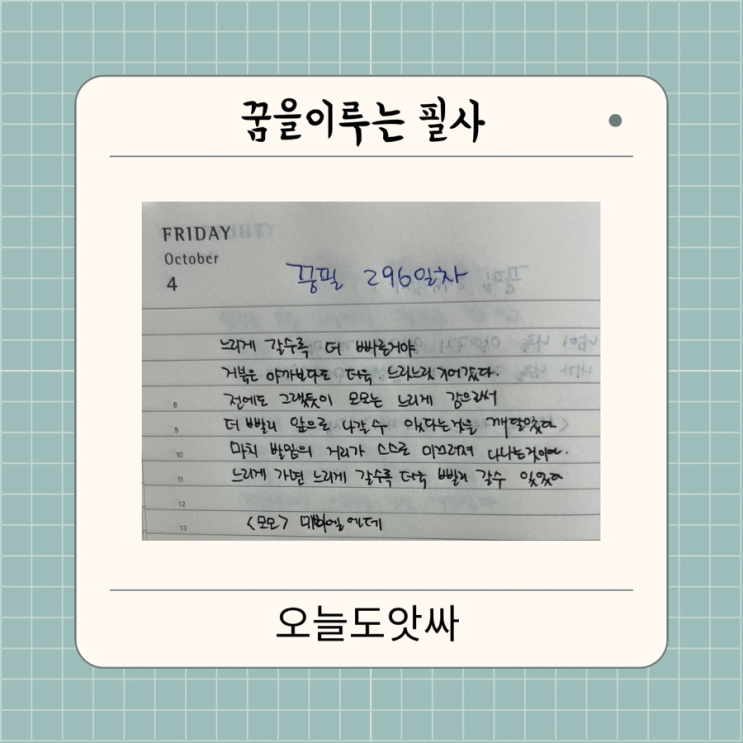 꿈을이루는 필사
FRIDAY
October
4
꿈필 296일차
느리게 갈수록 더 빠른거야.
거북은 아까보다도 더욱 느릿느릿 기어갔다.
8 전에도 그랬듯이 모모는 느리게 감으로써
9 더 빨리 앞으로 나갈 수 있다는것을 깨달았다
10 마치 발밑의 거리가 스스로 미끄러져 나가는것이다.
11 느리게 가면 느리게 갈수록 더욱 빨리 갈수 있었다
12
13 <모모> 미하엘 엔데
오늘도앗싸